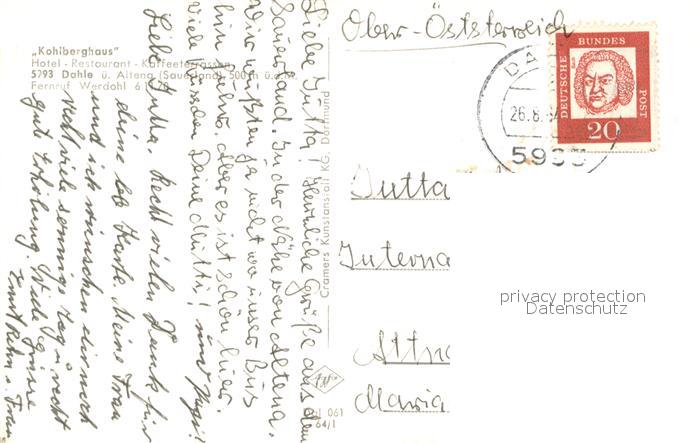 „Kohlberghaus"
Hotel - Restaurant - Kaffeeterrassen
5293 Dahle ü. Altena (Sauerland) 500 m ü.d.M.
Fernruf Werdohl 61170
Liebe Jutta! Herzliche Grüße aus dem
Sauerland. In der Nähe von Altena.
Wir wußten ja nicht wo unser Bus
hin fuhr, aber es ist schön hier.
Viele Deine Mutti! und
Liebe Jutta. Recht vielen Dank für
deine lb Karte. Meine Frau
und ich wünschen dir noch
recht viele sonnige Tag u. recht
gut Erholung. Viele Grüsse
Ernst u. Frau
Cramers Kunstanstalt KG, Dortmund
061
64/1
Ober-Öststerreich
Jutta
Interna
Attn
Maria
DA
26.8.64
DEUTSCHE BUNDES POST
20
privacy protection
Datenschutz